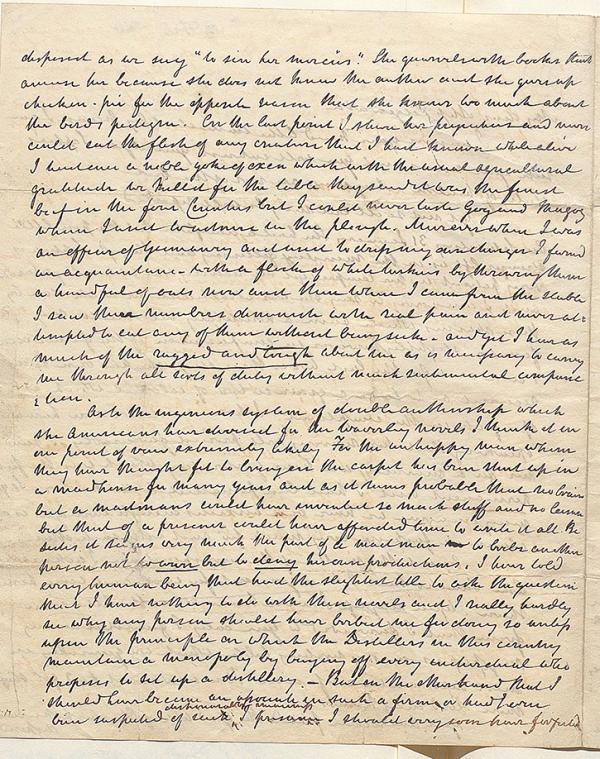 disposed as we say "to sin her mercies". She quarrels with books that
amuse her because she does not know the author and she gives up
chicken-pie for the opposite reason that she knows too much about
the birds pedigree. On the last point I share her prejudices and never
could eat the flesh of any creature that I had known while alive
I had once a noble yoke of oxen which with the usual agricultural
gratitude we killed for the table they said it was the finest
beef in the four Counties but I could never taste Gog and Magog
whom I used to admire in the plough. Moreover when I was
an officer of yeomanry and used to dressing my charger I formed
an acquaintance with a flock of white turkies by throwing them
a handful of oats now and then when I came from the stable
I saw their numbers diminish with real pain and never at-
tempted to eat any of them without being sick. and yet I have as
much of the rugged and tough about me as is necessary to carry
me through all sorts of duty without much sentimental compunc
tion.
As to the ingenious system of double authorship which
the Americans have devised for the Waverley novels I think it in
one point of view extremely likely For the unhappy man whom
they have thought fit to bring on the carpet has been shut up in
a madhouse for many years and as it seems probable that no brain
but a madmans could have invented so much stuff and no leisure
but that of a prisoner could have afforded time to write it all Be
sides it seems very much the part of a mad man to bribe another
person not to own but to deny his own productions. I have told
every human being that had the slightest title to ask the question
that I have nothing to do with these novels and I really hardly
see why any person should have bribed me for doing so unless
upon the principle on which the Distillers in this country
maintain a monopoly by buying off every individual who
proposes to set up a distillery. - But on the other hand that I
should have become an associate in such a firm or had even
been suspected of such dishonourable I presume I should very soon have forfeited